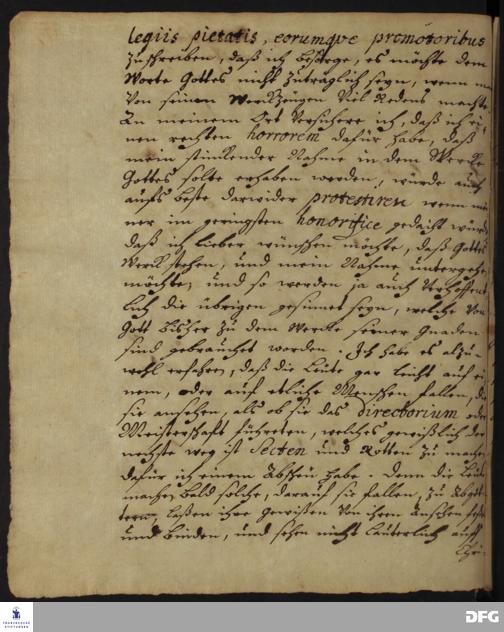 legiis pietatis, eorumqve promotoribus
zuschreiben, daß ich besorge, es möchte dem
Worte Gottes nicht zuträglich seyn, wenn
von seinen Werckzeugen viel Redens machte
An meinem Ort versichere ich, daß ich ei-
nen rechten horrorem dafür habe, daß
mein stinckender Nahme in dem Wercke
Gottes solte erhaben werden, würde auch
aufs beste darwider protestiren wenn
ner im geringsten honorifice gedacht würde
daß ich lieber wünschen möchte, daß Gottes
Werck stehen, und mein Nahme untergehen
möchte, und so werden ja auch verhoffent-
lich die übrigen gesinnet seyn, welche von
Gott bisher zu dem Wercke seiner Gnaden
sind gebrauchet worden. Ich habe es allzu-
wohl erfahren, daß die Leute gar leicht auf ei-
nen, oder auf etliche Menschen fallen, die
sie ansehen, als ob sie das directorium oder
Meisterschafft führeten, welches gewißlich der
nechste weg ist Secten und Rotten zu machen
dafür ich einen Abscheu habe. Denn die Leute
machen bald solche, darauf sie fallen, zu Abgöt-
tern, laßen ihre gewißen von ihrem Ansehen
und binden, und sehen nicht lauterlich auff
Chri-
DFG